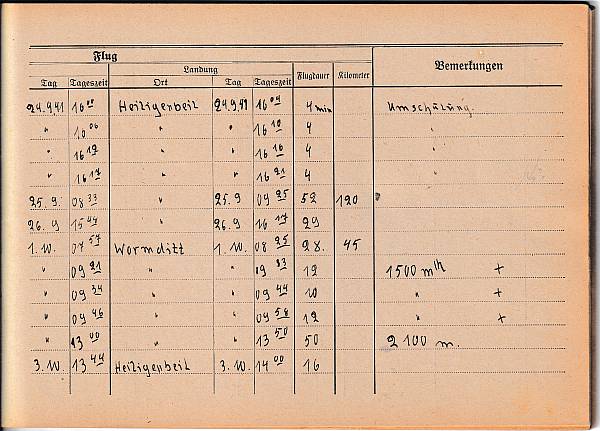 Flug
Landung
Bemerkungen
Tag Tageszeit Ort Tag Tageszeit Flugdauer Kilometer
24.9.41 16 00 Heiligenbeil 24.9.41 16 04 4 min Umschulung.
" 16 06 " " 16 10 4 "
" 16 12 " " 16 16 4 "
" 16 17 " " 16 21 4 "
25.9. 08 33 " 25.9 09 25 52 120
26.9 15 44 " 26.9 16 17 29
1.10. 07 57 Wormditt 1.10. 08 25 28. 45
" 09 21 " " 09 33 12 1500 mtr +
" 09 34 " " 09 44 10 " +
" 09 46 " " 09 58 12 " +
" 13 00 " " 13 50 50 2100 m.
3.10. 13 44 Heiligenbeil 3.10. 14 00 16